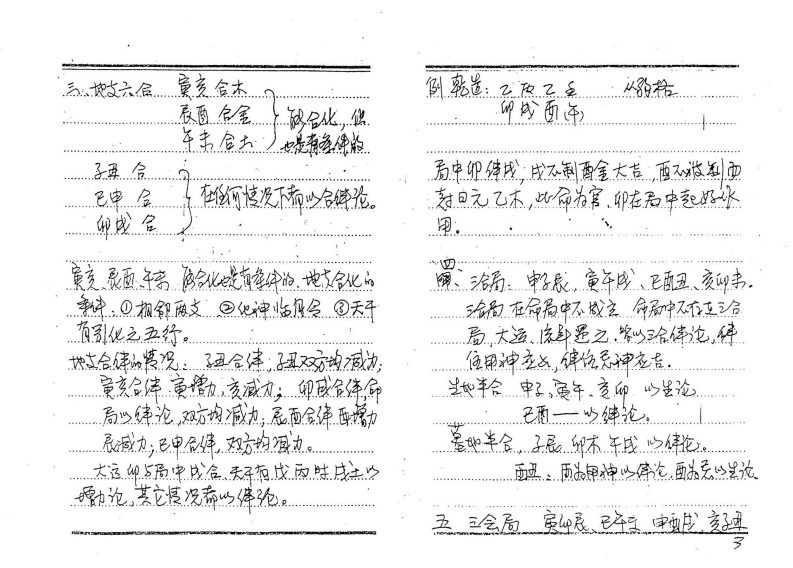 三、地支六合 寅亥合木
辰酉合金
午未合土
能合化，但
也是有条件的
子丑 合
巳申 合
卯戌 合
在任何情况下都以合绊论。
寅亥、辰酉、午未 能合化也是有条件的，地支合化的
条件：①相邻两支 ②化神临月令 ③天干
有引化之五行。
地支合绊的情况：子丑合绊，子丑双方均减力；
寅亥合绊 寅增力，亥减力；卯戌合绊，命
局以绊论，双方均减力；辰酉合绊 酉增力
辰减力；巳申合绊，双方均减力。
大运卯与局中戌合，天干有戊丙时戌土以
增力论，其它情况都以绊论。
例 乾造：乙 丙 乙 壬 从弱格
卯 戌 酉 午
局中卯绊戌，戌不制酉金大吉，酉不被制而
日元乙木，此命为官，卯在局中起好作
用。
四、三合局：申子辰，寅午戌、巳酉丑、亥卯未.
三合局在命局中不成立 命局中不存在三合
局，大运、流年遇之.以三合绊论，绊
住用神立凶，绊住忌神立吉.
生地半合 申子、寅午、亥卯 以生论
巳酉——以绊论。
墓地半合，子辰 卯未 午戌 以绊论。
酉丑、酉为用神以绊论，酉为忌以生论
五 三会局 寅卯辰、巳午未 申酉戌、亥子丑
3